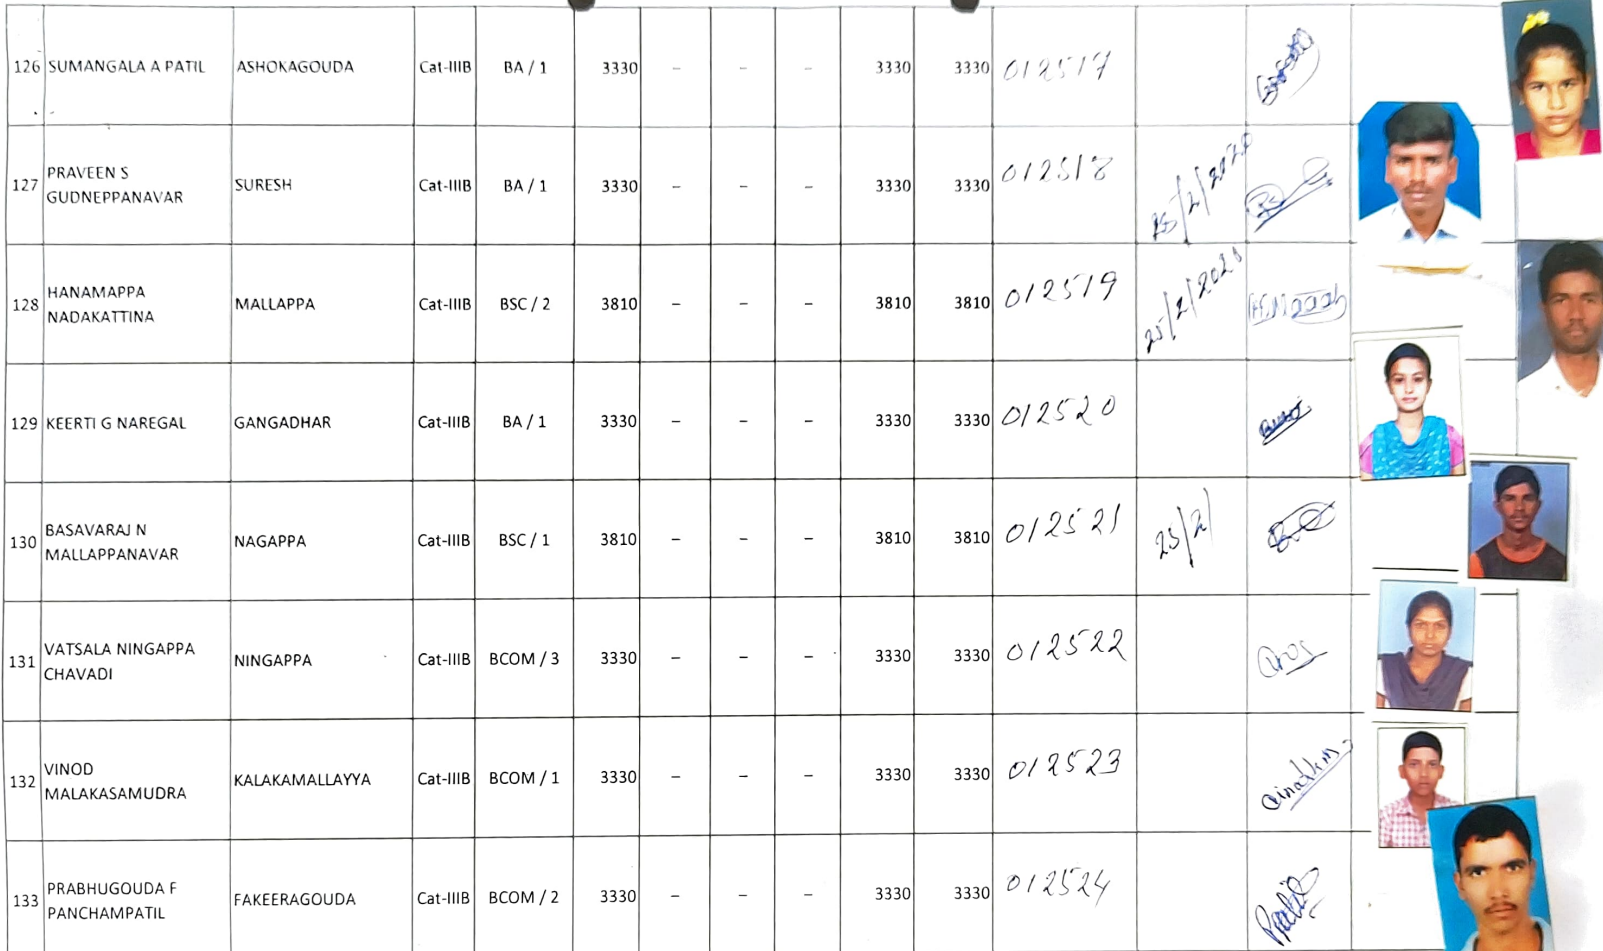 126 SUMANGALA A PATIL ASHOKAGOUDA Cat-IIIB BA / 1 3330 – – – 3330 3330 012517
127 PRAVEEN S GUDNEPPANAVAR SURESH Cat-IIIB BA / 1 3330 – – – 3330 3330 012518 25/2/2020
128 HANAMAPPA NADAKATTINA MALLAPPA Cat-IIIB BSC / 2 3810 – – – 3810 3810 012519 25/2/2020
129 KEERTI G NAREGAL GANGADHAR Cat-IIIB BA / 1 3330 – – – 3330 3330 012520
130 BASAVARAJ N MALLAPPANAVAR NAGAPPA Cat-IIIB BSC / 1 3810 – – – 3810 3810 012521 25/2/
131 VATSALA NINGAPPA CHAVADI NINGAPPA Cat-IIIB BCOM / 3 3330 – – – 3330 3330 012522
132 VINOD MALAKASAMUDRA KALAKAMALLAYYA Cat-IIIB BCOM / 1 3330 – – – 3330 3330 012523
133 PRABHUGOUDA F PANCHAMPATIL FAKEERAGOUDA Cat-IIIB BCOM / 2 3330 – – – 3330 3330 012524